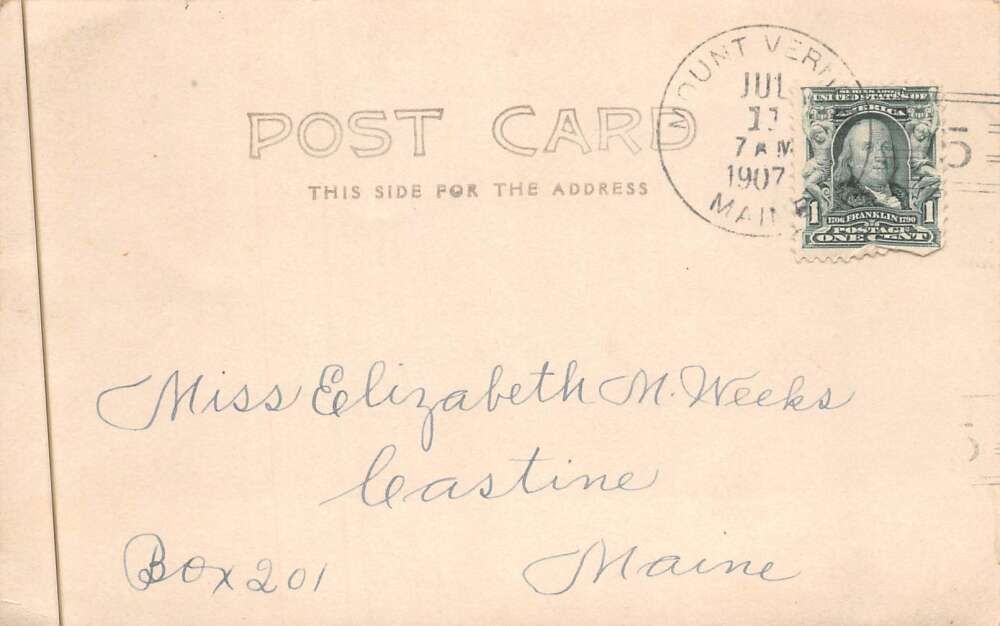 POST CARD
THIS SIDE FOR THE ADDRESS
MOUNT VERN
JUL
11
7 AM
1907
MAINE
SERIES 1902
UNITED STATES OF
AMERICA
1 1706 FRANKLIN 1790 1
POSTAGE
ONE CENT
5
Miss Elizabeth M. Weeks
Castine
Box 201 Maine